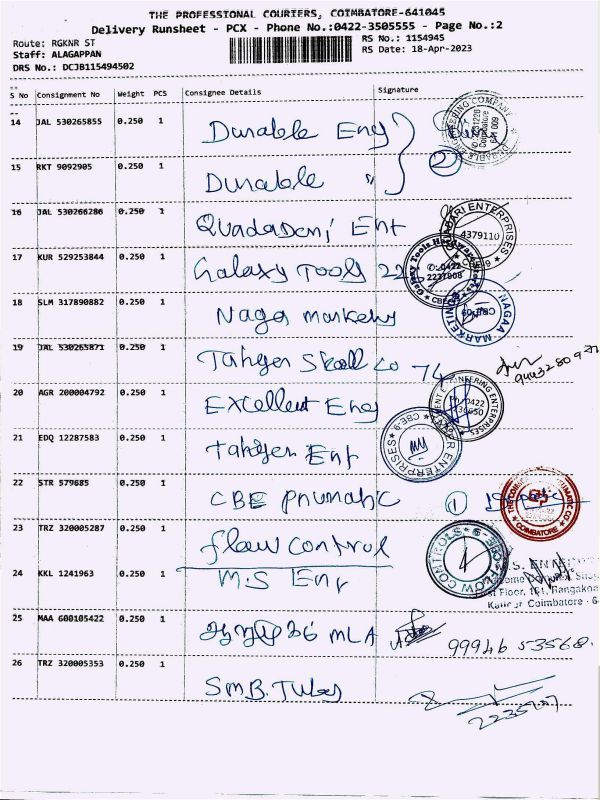 THE PROFESSIONAL COURIERS, COIMBATORE-641045
Delivery Runsheet - PCX - Phone No.:0422-3505555 - Page No.:2
Route: RGKNR ST
RS No.: 1154945
Staff: ALAGAPPAN
RS Date: 18-Apr-2023
DRS No.: DCJB115494502
S No Consignment No Weight PCS Consignee Details Signature
14 JAL 530265855 0.250 1 Durable Eng
15 RKT 9092905 0.250 1 Durable " 2
16 JAL 530266286 0.250 1 Ent
4379110
17 KUR 529253844 0.250 1 Galaxy Tools 22
18 SLM 317890882 0.250 1 Naga
NAGAA MARKETING
19 JAL 530265871 0.250 1 Co 74
20 AGR 200004792 0.250 1 Excellent Eng
21 EDQ 12287583 0.250 1 Ent
22 STR 579685 0.250 1 CBE Pnumatic 1
COIMBATORE
23 TRZ 320005287 0.250 1 flow control
FLOW CONTROLS
24 KKL 1241963 0.250 1 M.S Ent
Coimbatore
25 MAA 600105422 0.250 1 MLA 99946 53568.
26 TRZ 320005353 0.250 1 SMB. Tubes